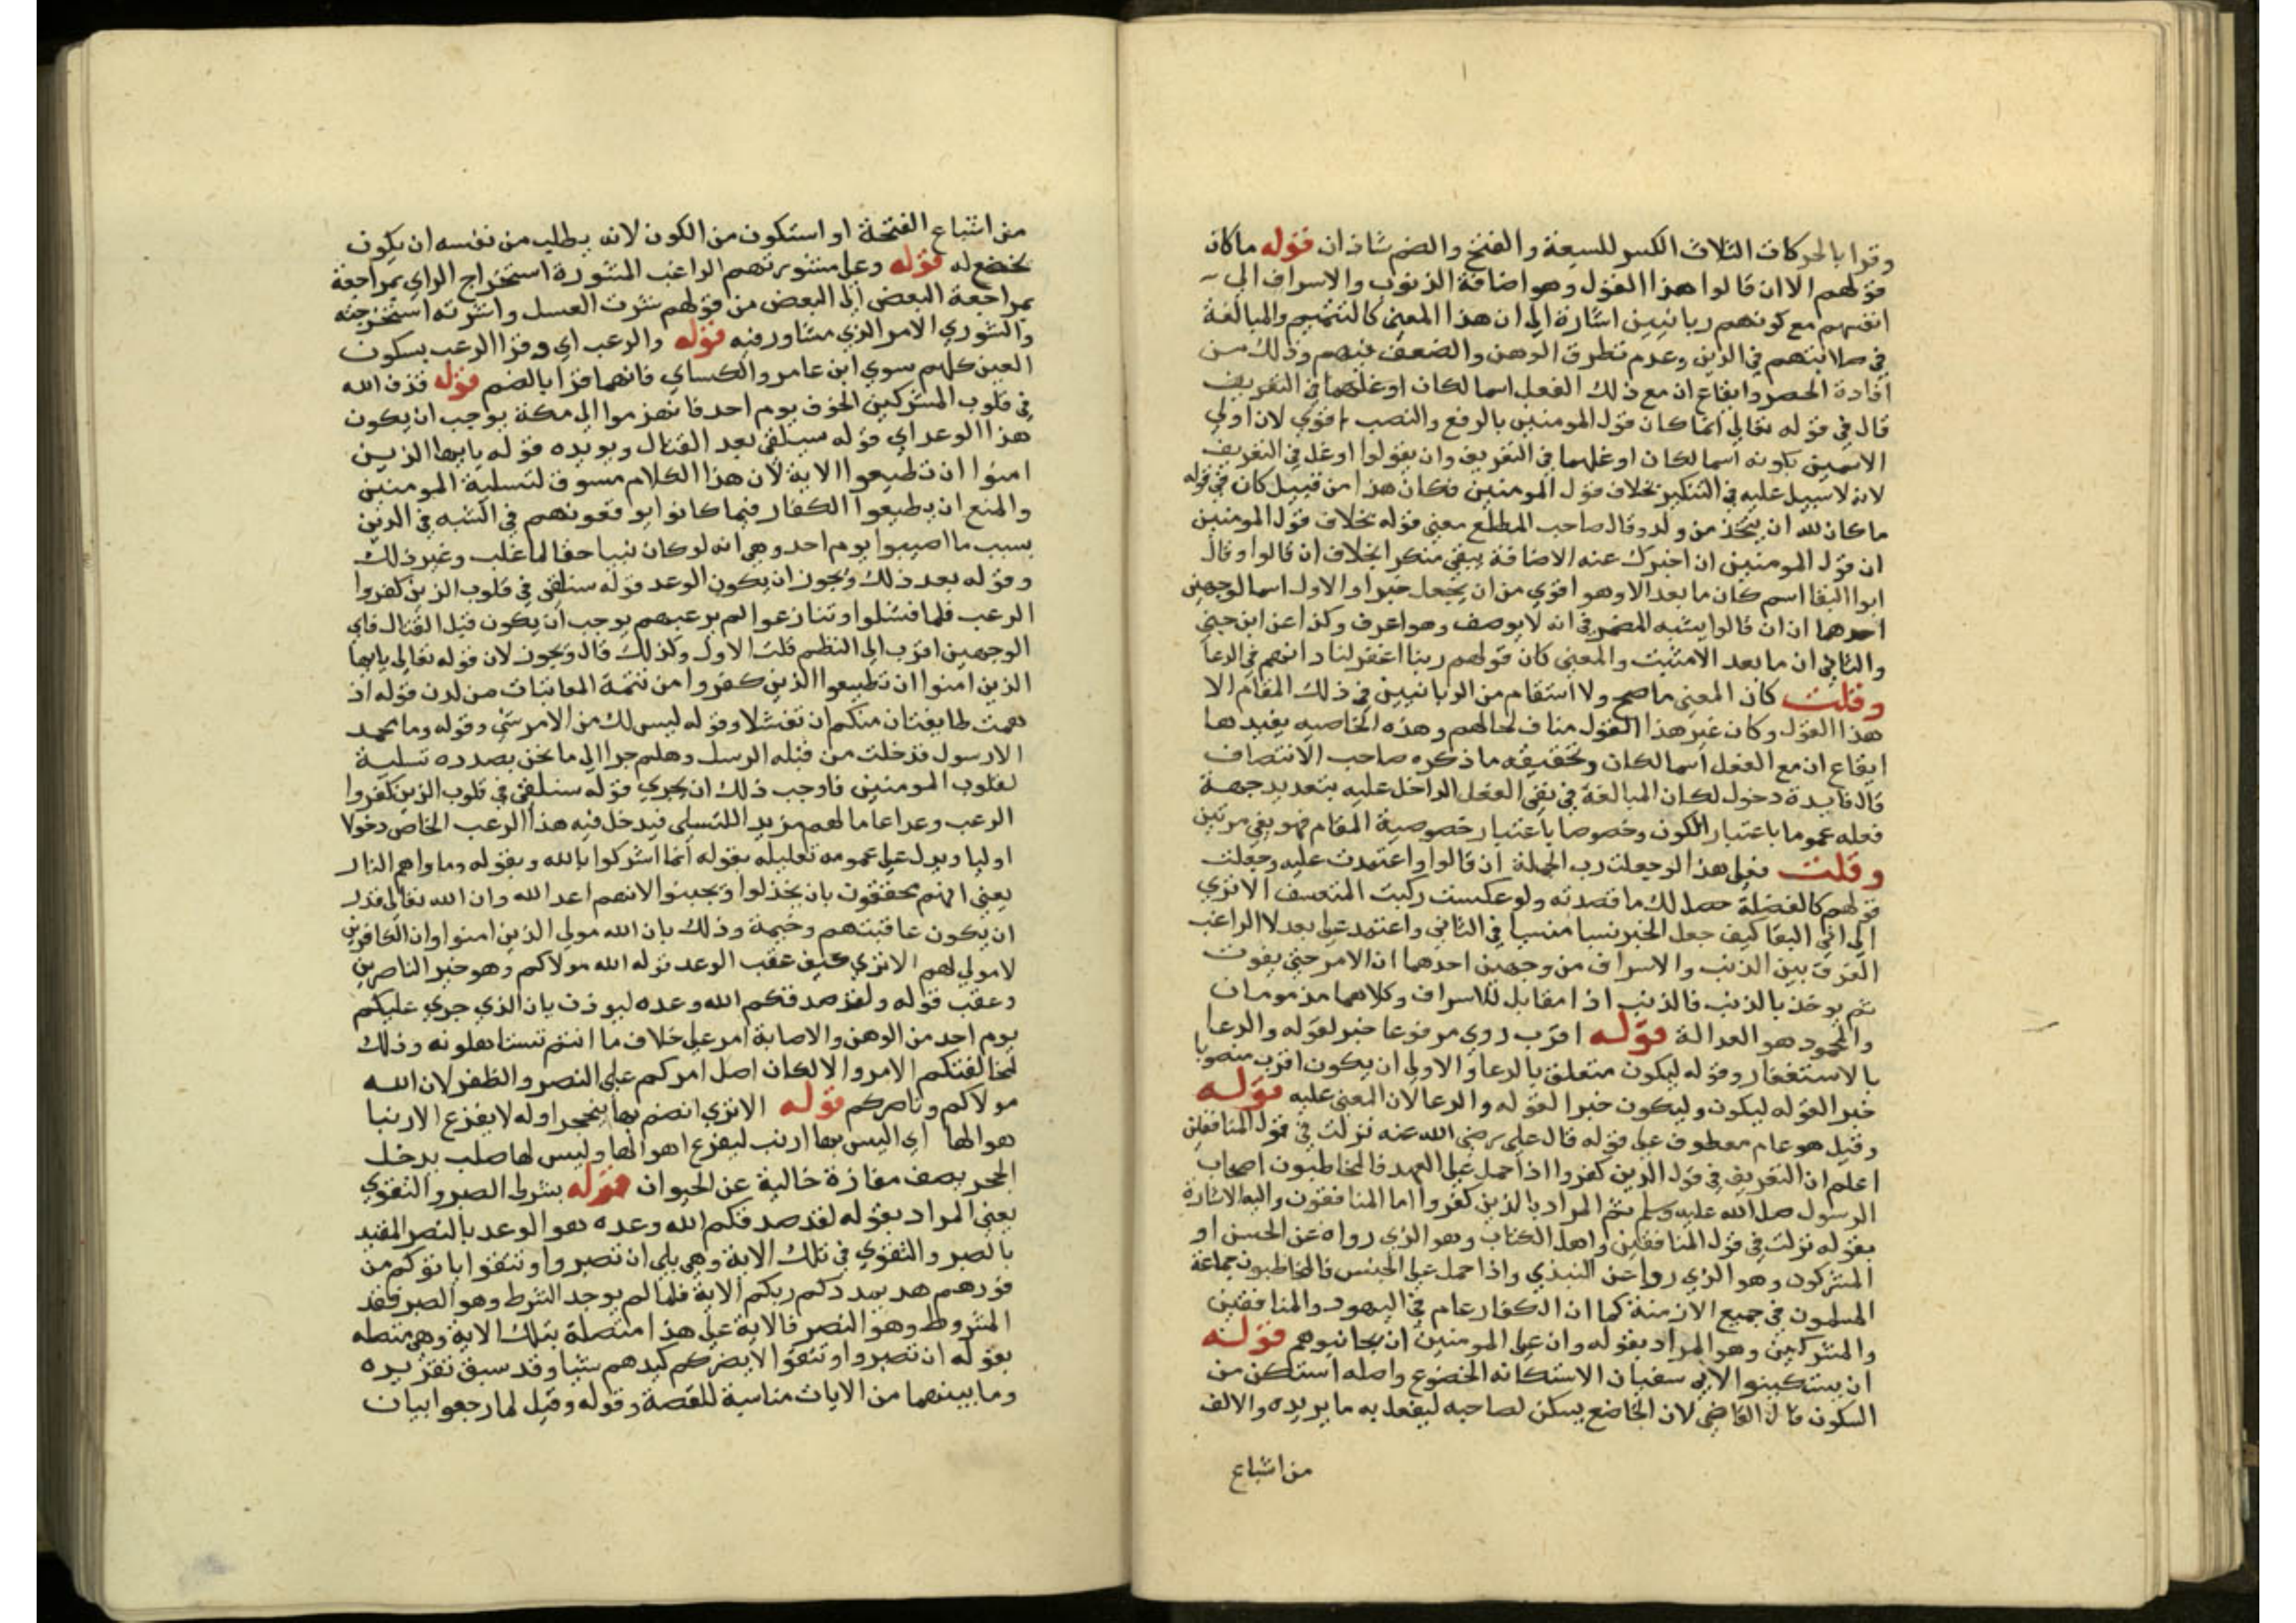 وقرا بالحركات الثلاث الكسر للسبعة والفتح والضم شاذان قوله ماكان
قولهم الا ان قالوا هذا القول وهو اضافة الذنوب والاسراف الي
انفسهم مع كونهم ربانيين اشارة الي ان هذا المعني كالتتميم والمبالغة
في صلابتهم في الدين وعدم تطرق الوهن والضعف فيهم وذلك من
افادة الحصر وايقاع ان مع ذلك الفعل اسما لكان اوغلهما في التعريف
قال في قوله تعالي انما كان قول المومنين بالرفع والنصب اقوي لان اولي
الاسمين بكونه اسما لكان اوغلهما في التعريف وان يقولوا اوغل في التعريف
لانه لاسبيل عليه في التنكير بخلاف قول المومنين فكان هذا من قبيل كان في قوله
ماكان لله ان يتخذ من ولد وقال صاحب المطلع معني قوله بخلاف قول المومنين
ان قول المومنين ان اختزلت عنه الاضافة يبقي منكرا بخلاف ان قالوا وقال
ابو البقا اسم كان ما بعد الا وهو اقوي من ان يجعل خبرا والاول اسما لوجهين
احدهما ان ان قالوا يشبه المضمر في انه لا يوصف وهو اعرف وكذا عن ابن جني
والثاني ان ما بعد الا مثبت والمعني كان قولهم ربنا اغفر لنا دابهم في الدعا
وقلت كان المعني ما صح ولا استقام من الربانيين في ذلك المقام الا
هذا القول وكان غير هذا القول مناف لحالهم وهذه الخاصيه يفيدها
ايقاع ان مع الفعل اسما لكان وتحقيقه ما ذكره صاحب الانتصاف
قال فايدة دخول لكان المبالغة في نفي الفعل الداخل عليه بتعديد جهة
فعله عموما باعتبار الكون وخصوصا باعتبار خصوصية المقام فهو نفي مرتين
وقلت فعلي هذا لو جعلت رب الجملة ان قالوا واعتمدت عليه وجعلت
قولهم كالفضلة حصل لك ما قصدته ولو عكست ركبت المتعسف الا تري
الي ابي البقا كيف جعل الخبر نسيا منسيا في الثاني واعتمد علي بعد لا الراغب
الفرق بين الذنب والاسراف من وجهين احدهما ان الامر حتي يفوت
ثم يوخذ بالذنب فالذنب اذا مقابل للاسراف وكلاهما مذمومان
والمحمود هو العدالة قوله اقرب روي مرفوعا خبر لقوله والدعا
بالاستغفار وقوله ليكون متعلق بالدعا والاولي ان يكون اقرب منصوبا
خبرا لقوله ليكون وليكون خبرا لقوله والدعا لان المعني عليه قوله
وقيل هو عام معطوف علي قوله قال علي رضي الله عنه نزلت في قول المنافقين
اعلم ان التعريف في قول الذين كفروا اذا حمل علي العهد فالمخاطبون اصحاب
الرسول صلي الله عليه وسلم ثم المراد بالذين كفروا اما المنافقون واليه الاشارة
بقوله نزلت في قول المنافقين واهل الكتاب وهو الذي رواه عن الحسن او
المشركون وهو الذي روا عن السدي واذا حمل علي الجنس فالمخاطبون جماعة
المسلمون في جميع الازمنة كما ان الكفار عام في اليهود والمنافقين
والمشركين وهو المراد بقوله وان علي المومنين ان يجانبوهم قوله
ان يستكينوا لابي سفيان الاستكانه الخضوع واصله استكن من
السكون قال القاضي لان الخاضع يسكن لصاحبه ليفعل به ما يريده والالف
من اشباع
من اشباع الفتحة او استكون من الكون لانه يطلب من نفسه ان يكون
يخضع له قوله وعلي مشورتهم الراغب المشورة استخراج الراي بمراجعة
بمراجعة البعض الي البعض من قولهم شرت العسل واشرته استخرجته
والشوري الامر الذي يتشاور فيه قوله والرعب اي وقرا الرعب بسكون
العين كلهم سوي ابن عامر والكساي فانهما قرا بالضم قوله قذف الله
في قلوب المشركين الخوف يوم احد فانهزموا الي مكة يوجب ان يكون
هذا الوعد اي قوله سيلقي بعد القتال ويويده قوله يايها الذين
امنوا ان تطيعوا الاية لان هذا الكلام مسوق لتسلية المومنين
والمنع ان يطيعوا الكفار فيما كانوا يوقعونهم في الشبه في الدين
بسبب ما اصيبوا يوم احد وهي انه لو كان نبيا حقا لما غلب وغير ذلك
وقوله بعد ذلك ويجوز ان يكون الوعد قوله سنلقي في قلوب الذين كفروا
الرعب فلما فشلوا وتنازعوا لم يرعبهم يوجب ان يكون قبل القتال فاي
الوجهين اقرب الي النظم قلت الاول وكذلك قال ويجوز لان قوله تعالي يايها
الذين امنوا ان تطيعوا الذين كفروا من تتمة المعاتبات من لدن قوله اذ
همت طايفتان منكم ان تفشلا وقوله ليس لك من الامر شي وقوله وما محمد
الا رسول قد خلت من قبله الرسل وهلم جرا الي ما نحن بصدده تسلية
لقلوب المومنين فاوجب ذلك ان يجري قوله سنلقي في قلوب الذين كفروا
الرعب وعدا عاما لهم مزيدا للتسلي فيدخل فيه هذا الرعب الخاص دخولا
اوليا ويدل علي عمومه تعليله بقوله انما اشركوا بالله وبقوله وماواهم النار
يعني انهم يحققون بان يخذلوا ويجبنوا لانهم اعدا الله وان الله تعالي قدر
ان يكون عاقبتهم وخيمة وذلك بان الله مولي الذين امنوا وان الكافرين
لا مولي لهم الا تري كيف عقب الوعد قوله الله مولاكم وهو خير الناصرين
وعقب قوله ولقد صدقكم الله وعده ليوذن بان الذي جري عليكم
يوم احد من الوهن والاصابة امر علي خلاف ما انتم تستاهلونه وذلك
لمخالفتكم الامر والا لكان اصل امركم علي النصر والظفر لان الله
مولاكم وناصركم قوله الا تري الضب بها ينجحر اوله لا يفزع الارنبا
هوالها اي اليس بها ارنب ليفزع اهوالها وليس لها صلب يدخل
الجحر يصف مفازة خالية عن الحيوان قوله بشرط الصبر والتقوي
يعني المراد بقوله لقد صدقكم الله وعده هو الوعد بالنصر المقيد
بالصبر والتقوي في تلك الاية وهي بلي ان تصبروا وتتقوا ياتوكم من
فورهم هذا يمددكم ربكم الاية فلما لم يوجد الشرط وهو الصبر فقد
المشروط وهو النصر فالاية علي هذا متصلة بتلك الاية وهي متصله
بقوله ان تصبروا وتتقوا لا يضركم كيدهم شيا وقد سبق تقريره
وما بينهما من الايات مناسبة للقصة وقوله وقيل لما رجعوا بيان